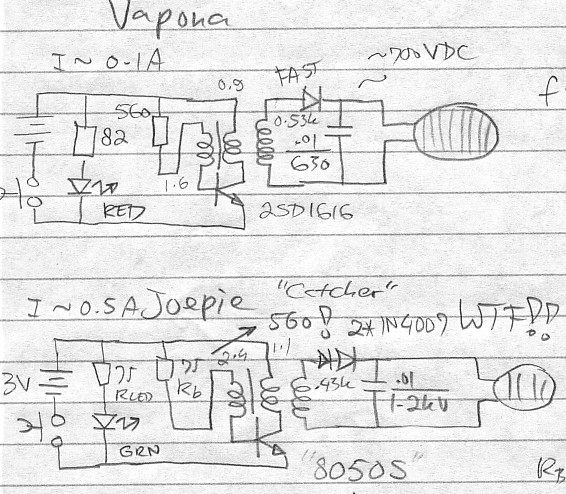 Vapona
I ~ 0.1A
FAST
~700VDC
0.9
560
82
0.53k
.01
630
1.6
RED
2SD1616
f
I ~ 0.5A Joepie "Catcher"
560! 2*1N4007 WTF!!
2.4
1.1
3V
75
RLED
75
Rb
.43k
.01
1.2kV
GRN
"8050S"
RB